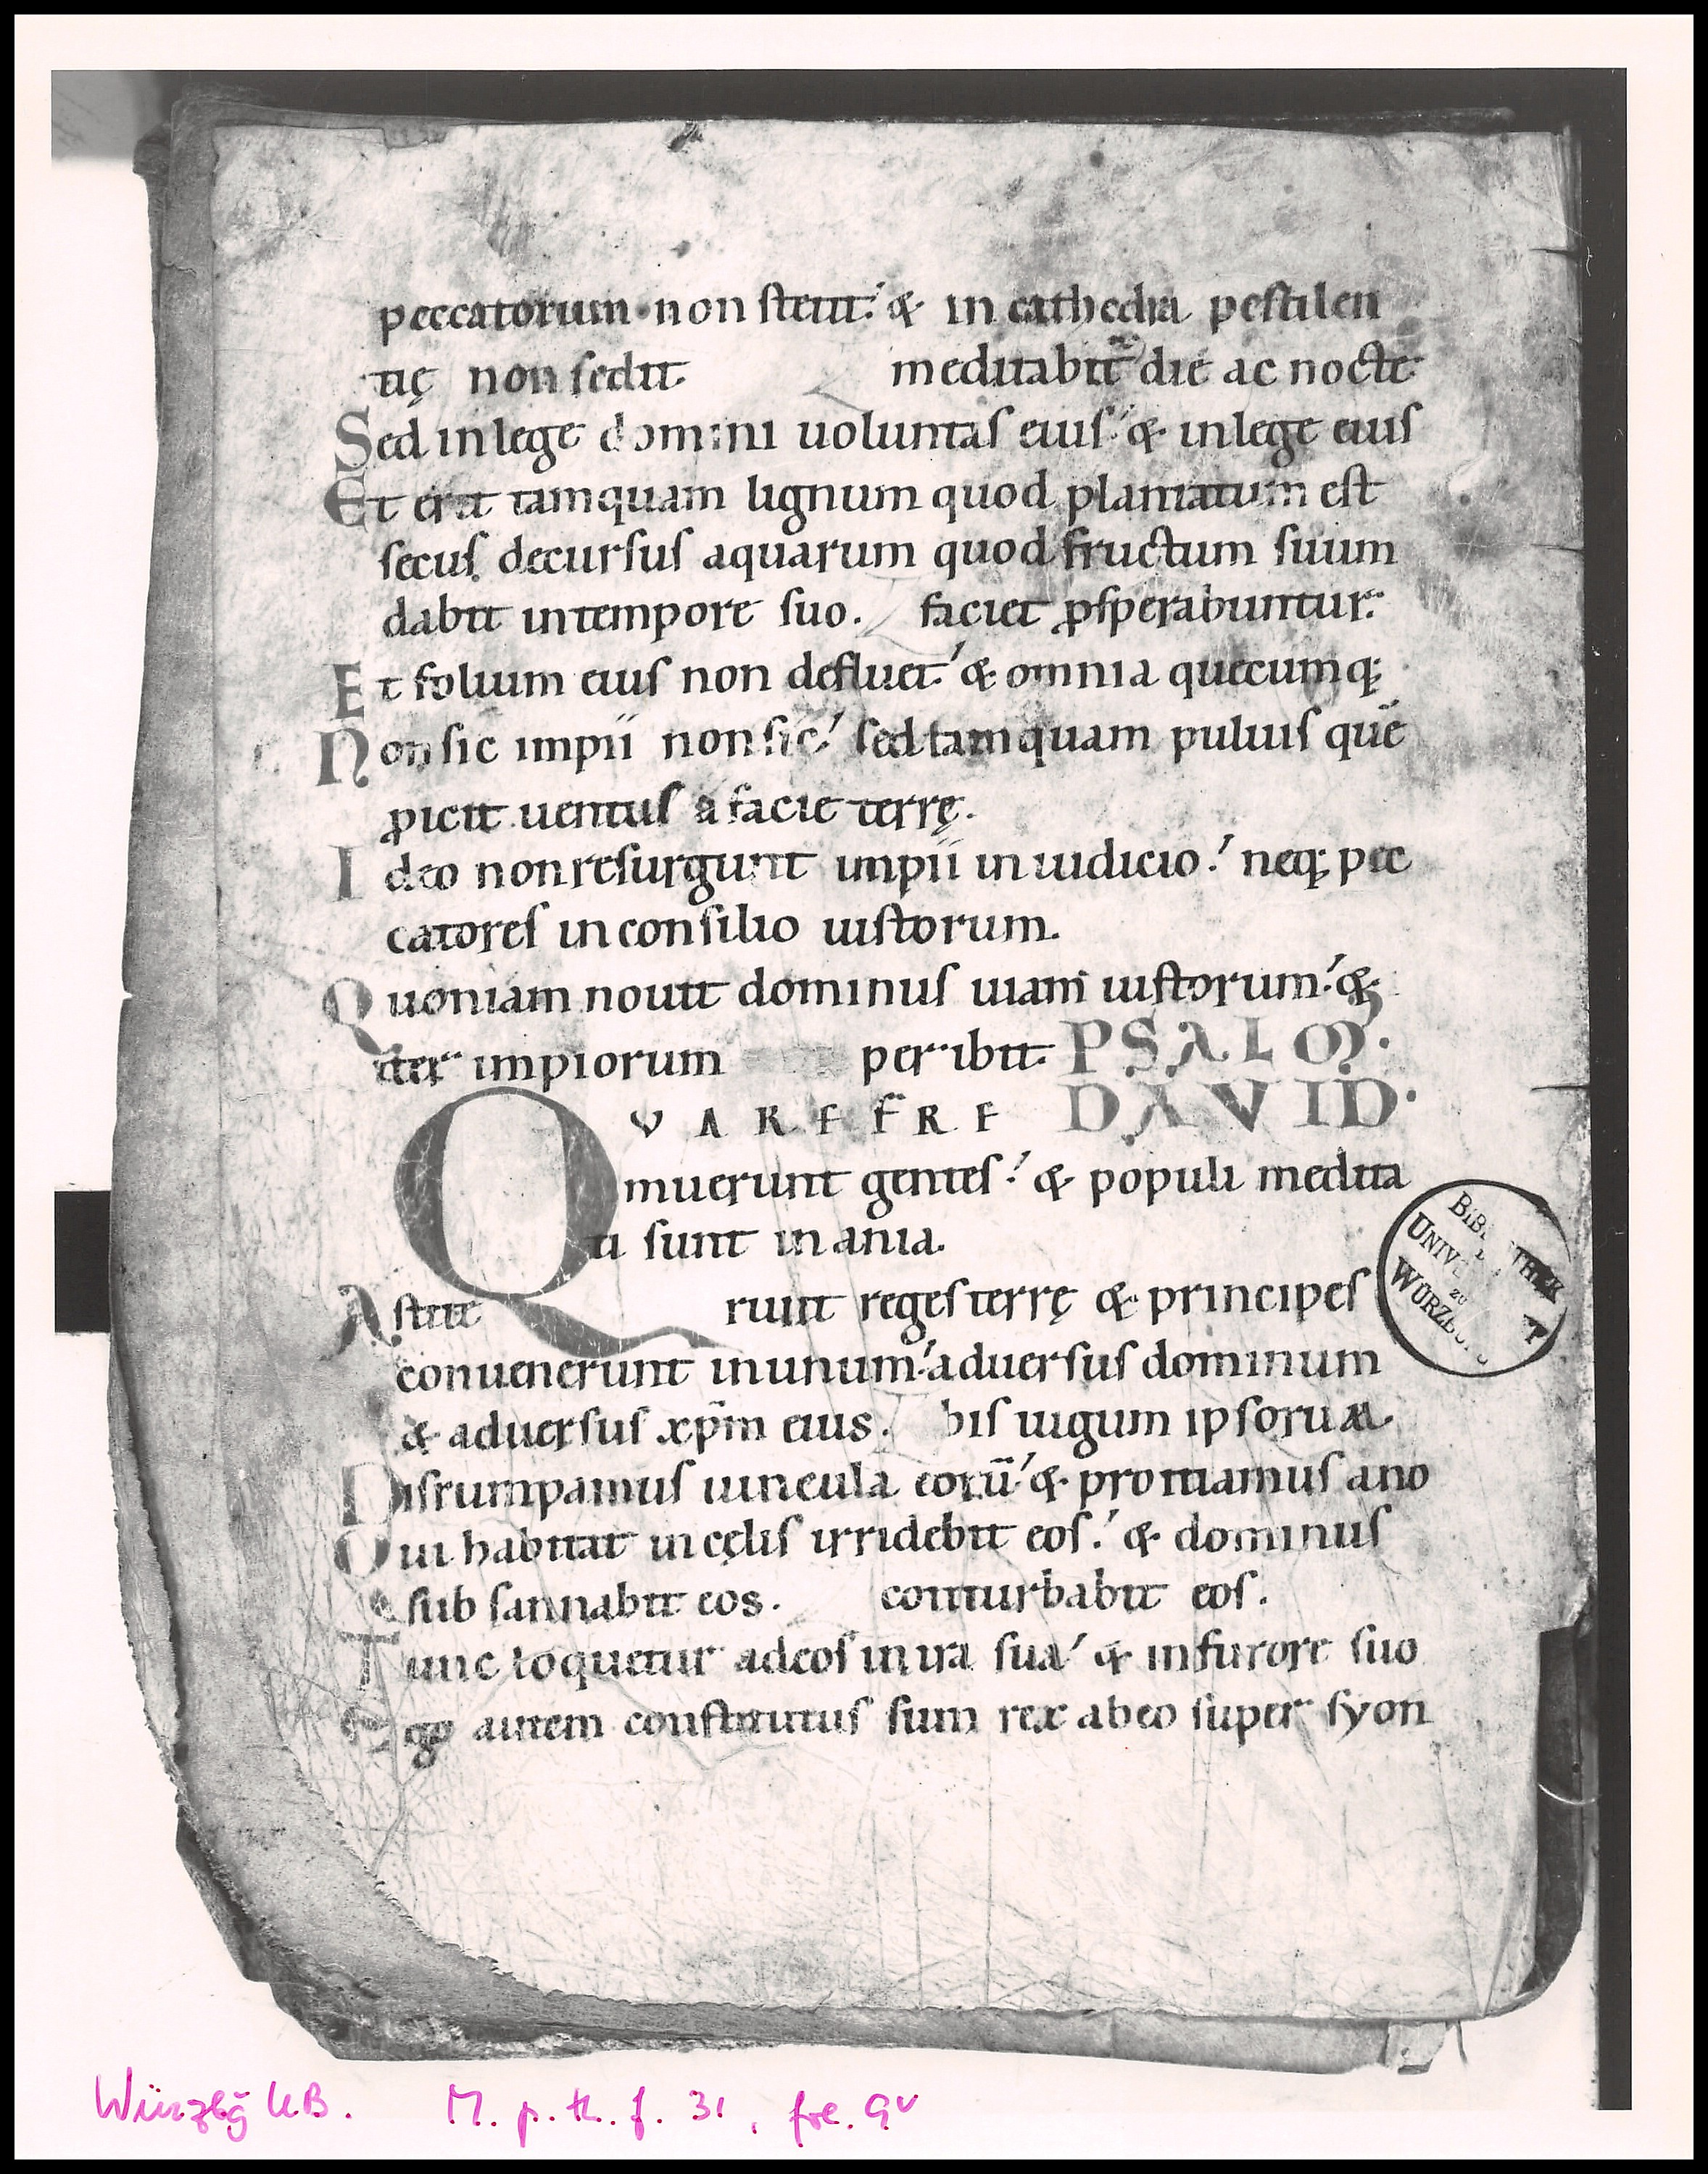 peccatorum·non stetit:́ & in cathedra pestilen
tię non sedit. meditabit᷑ die ac nocte
Sed in lege domini uoluntas eius:́ & in lege eius
Et erit tamquam lignum quod plantatum est
secus decursus aquarum quod fructum suum
dabit in tempore suo. faciet ꝓsperabuntur.
Et folium eius non defluet:́ & omnia quecumq;
Non sic impii non sic:́ sed tamquam puluis quē
ꝓicit uentus a facie terrę.
Ideo non resurgunt impii in iudicio:́ neq; pec
catores in consilio iustorum.
Quoniam nouit dominus uiam iustorum:́ &
iter impiorum peribit. PSALM.
QVARE FRE DAVID.
muerunt gentes:́ & populi medita
ti sunt inania.
Astite runt reges terrę & principes
conuenerunt in unum:́ aduersus dominum
& aduersus xp̄m eius. bis iugum ipsorum
Disrumpamus uincula eorū:́ & proiciamus a no
Qui habitat in cęlis irridebit eos:́ & dominus
subsannabit eos. conturbabit eos.
Tunc loquetur ad eos in ira sua:́ & in furore suo
Ego autem constitutus sum rex ab eo super syon
BIBLIOTHEK
UNIVE
ZU
WÜRZB
Würzbg UB. M. p. th. f. 31, fol. 9v